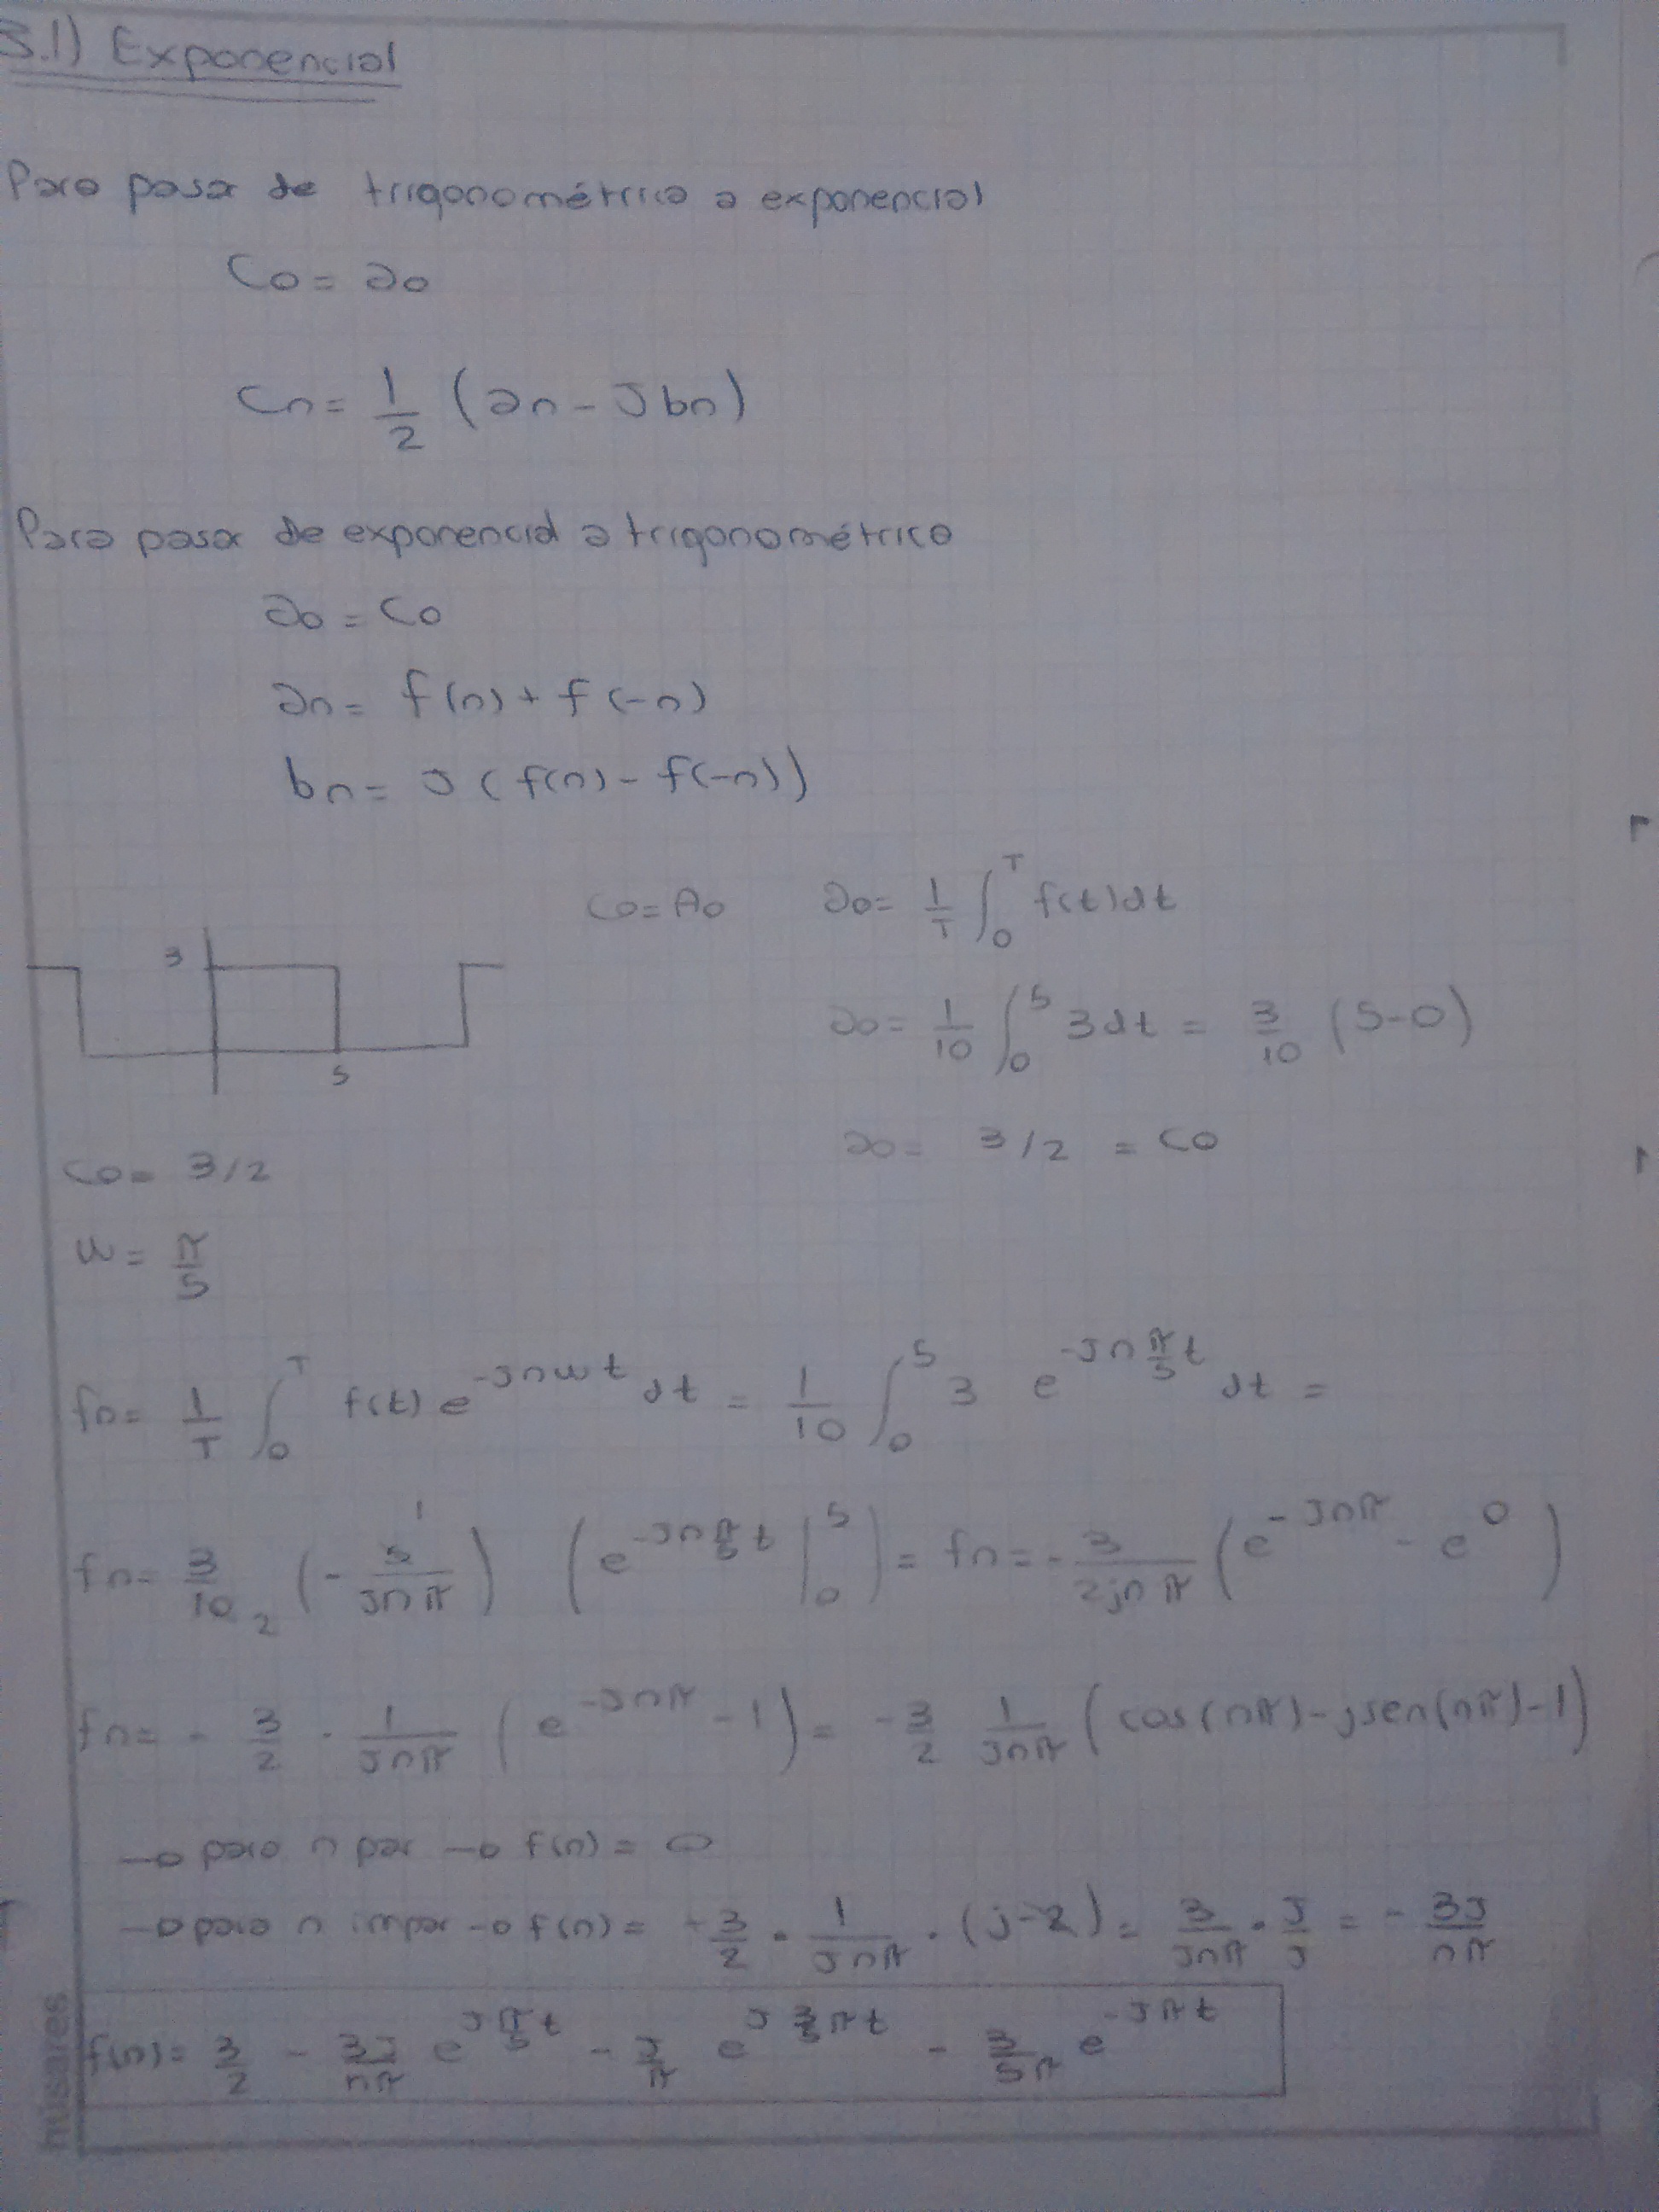 3.1) Exponencial
Para pasar de trigonométrica a exponencial
C0 = a0
Cn = 1/2 (an - J bn)
Para pasar de exponencial a trigonométrica
a0 = C0
an = f(n) + f(-n)
bn = J (f(n) - f(-n))
C0 = A0    a0 = 1/T ∫_0^T f(t) dt
3
5
a0 = 1/10 ∫_0^5 3 dt = 3/10 (5-0)
a0 = 3/2 = C0
C0 = 3/2
w = π/5
fn = 1/T ∫_0^T f(t) e^{-Jnwt} dt = 1/10 ∫_0^5 3 e^{-Jn π/5 t} dt =
fn = 3/10 2 (- 5 1/Jnπ) (e^{-Jn π/5 t} |_0^5) = fn = - 3/2jnπ (e^{-Jnπ} - e^0)
fn = - 3/2 · 1/Jnπ (e^{-Jnπ} - 1) = - 3/2 1/Jnπ (cos(nπ) - jsen(nπ) - 1)
→ para n par → f(n) = 0
→ para n impar → f(n) = - 3/2 · 1/Jnπ · (-2) = 3/Jnπ · J/J = - 3J/nπ
f(n) = 3/2 - 3J/nπ e^{J π/5 t} - J/π e^{J 3/5 πt} - 3/5π e^{-Jπt}
husares